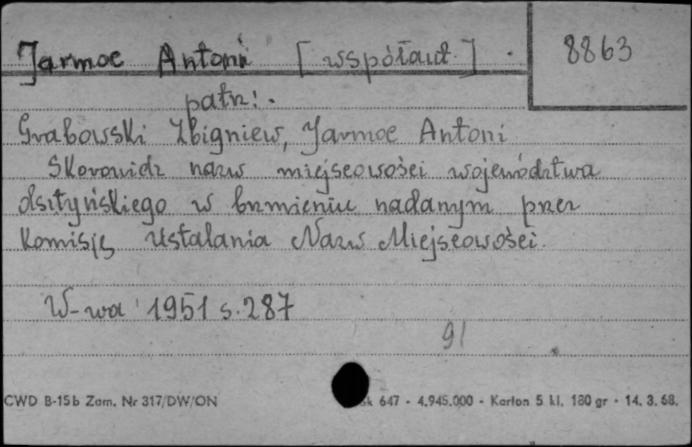 Jarmoc Antoni [współaut.] . 8863
patrz: .
Grabowski Zbigniew, Jarmoc Antoni
Skorowidz nazw miejscowości województwa
olsztyńskiego w brzmieniu nadanym przez
Komisję Ustalania Nazw Miejscowości.
W-wa 1951 s. 287
91
CWD B-15b Zam. Nr 317/DW/ON 647 - 4.945.000 - Karton 5 kl. 180 gr - 14. 3. 68.